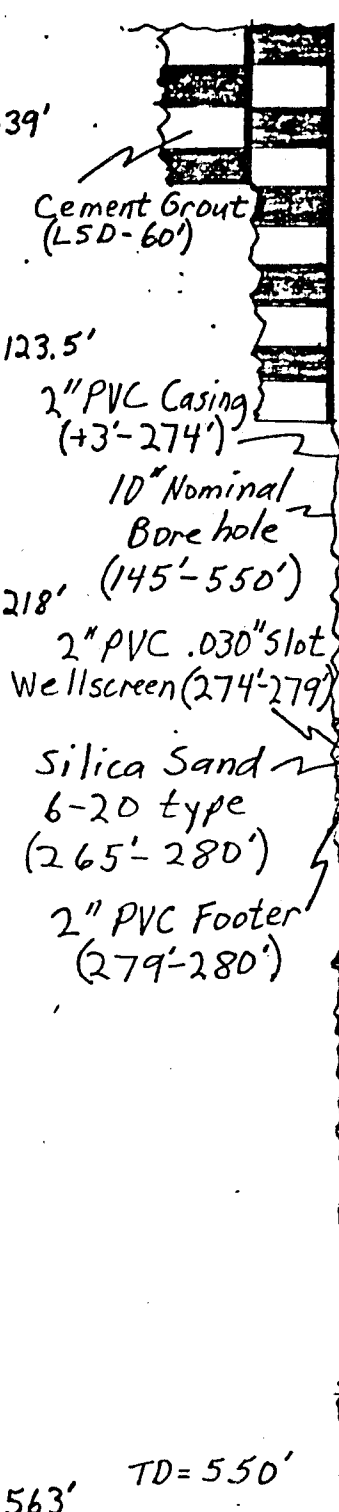 39'
Cement Grout
(LSD-60')
123.5'
2" PVC Casing
(+3'-274')
10" Nominal
Bore hole
(145'-550')
218'
2" PVC .030" Slot
Wellscreen (274'-279')
Silica Sand
6-20 type
(265'-280')
2" PVC Footer
(279'-280')
TD = 550'
563'